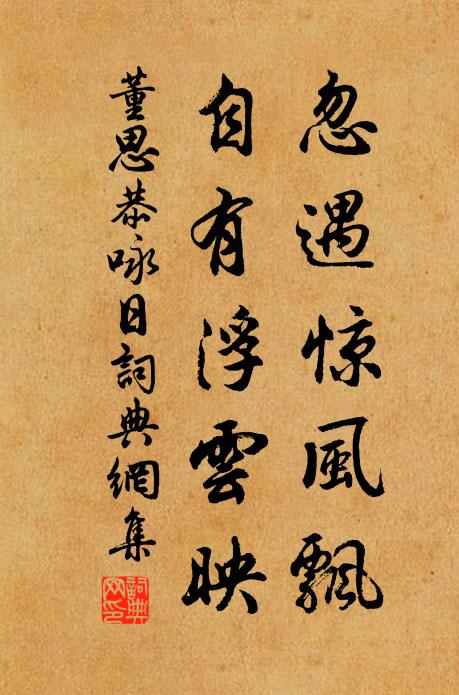 忽遇惊風飄
自有浮雲映
董思恭咏日詞典網集
詞典網印